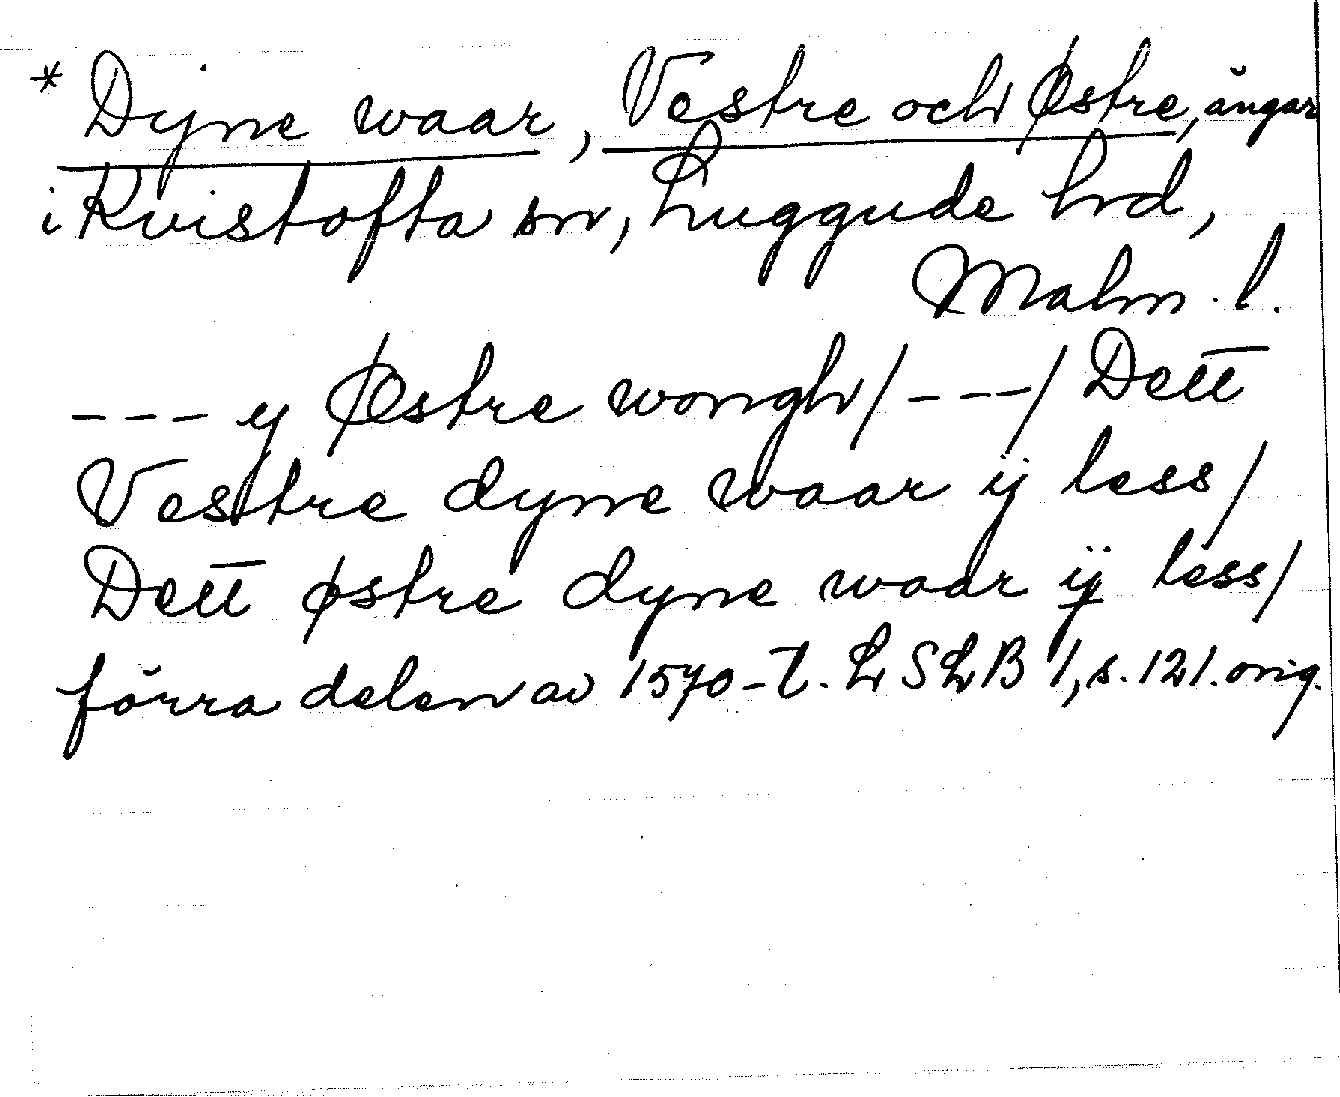 * Dyne waar, Vestre och Østre, ångar
i Kvistofta sn, Luggude hd,
Malm. l.
--- y Østre wongh/ ---/ Dett
Vestre dyne waar ij less/
Dett østre dyne waar ij less/
förra delen av 1570-t. LSLB 1, s. 121. orig.